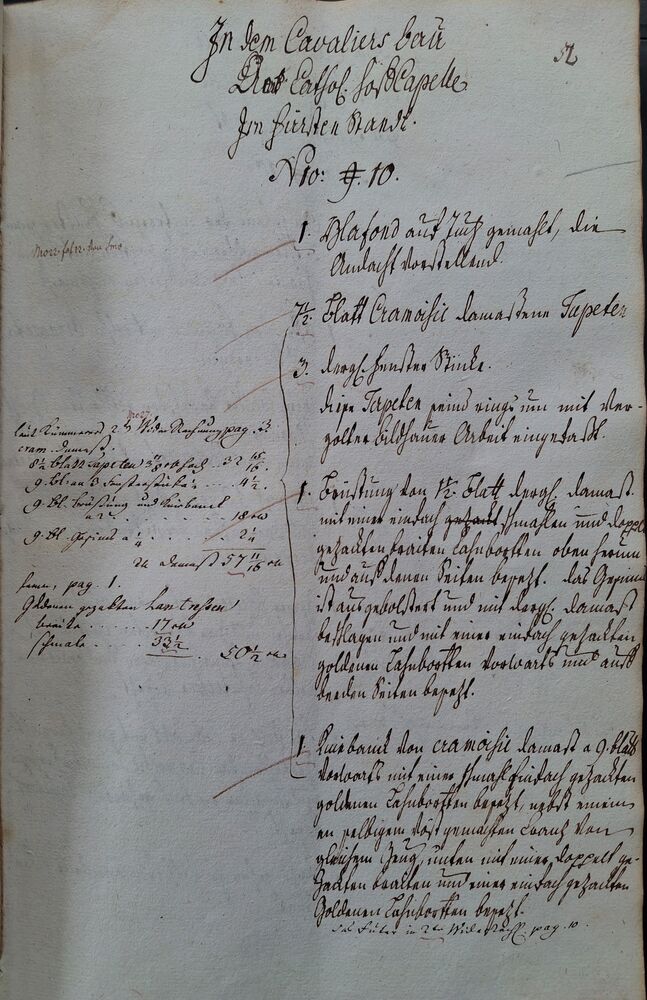 In dem Cavaliers bau
Cathol. Hof Capelle
Im fürsten Stande.
Nro: 10.
52
1. Plafond auf Tuch gemahlt, die
Andacht vorstellend.
7½. blatt Cramoisie damastene Tapeten
3. dergl. fenster Stücke.
diese Tapeten seind rings um mit ver-
golter bildhauer Arbeit eingefasst.
1. Brüstung von blatt dergl. damast
mit einer einfach schmahlen und doppelt
gezackten braiten Lahnbortten oben herum
und auf denen Seiten besezt. das Gesims
ist ausgebolstert und mit dergl. damast
beschlagen und mit einer einfach gezackten
goldenen Lahnbortten vorwarts und auf
beeden Seiten besezt.
1. Kniebanck von cramoisie damast a 9. blatt
vorwarts mit einer schmahl Einfach gezackten
goldenen Lahnbortten besezt, nebst einem
an selbigem vest gemachten Cranz von
gleichem Zeug, unten mit einer doppelt ge-
zackten braiten und einer einfach gezackten
Goldenen Lahnbortten besezt.
pag. 10.
laut pag. 3
cram. damast.
8½ blatt Tapeten hoch . . 32
9. bl. an 3 fensterstücken . . 4½.
9. bl. brüstung und Kniebanck
a 2 . . . . . . 18
9. bl. Gesims a ¼ . . . 2¼
damast 57 11/16
ferner, pag. 1.
Goldenen gezackten
breite . . . . . 17
schmale . . . . 33½
50½